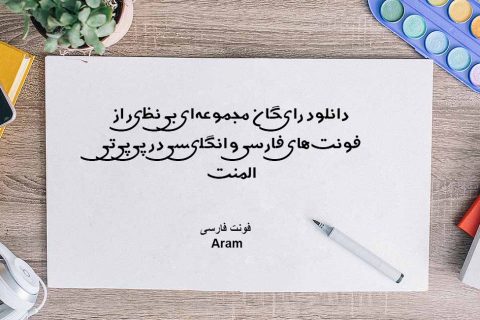 دانلود رایگان مجموعه‌ای بی نظیر از
فونت‌های فارسی و انگلیسی در پی پی تی
المنت
فونت فارسی
Aram